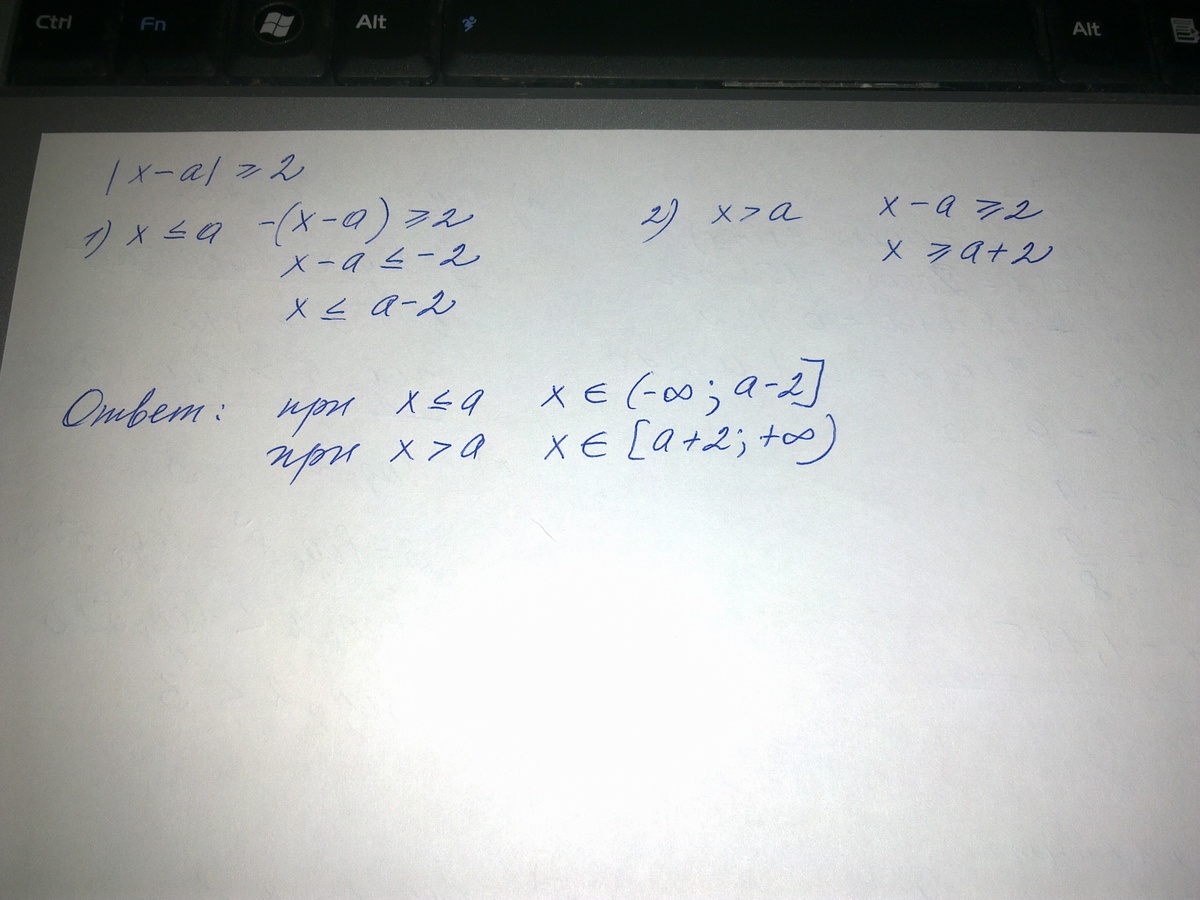 Ctrl Fn Alt Alt
|x-a| ⩾ 2
1) x ≤ a -(x-a) ⩾ 2
x-a ≤ -2
x ≤ a-2
2) x > a x-a ⩾ 2
x ⩾ a+2
Ответ: при x ≤ a x ∈ (-∞; a-2]
при x > a x ∈ [a+2; +∞)